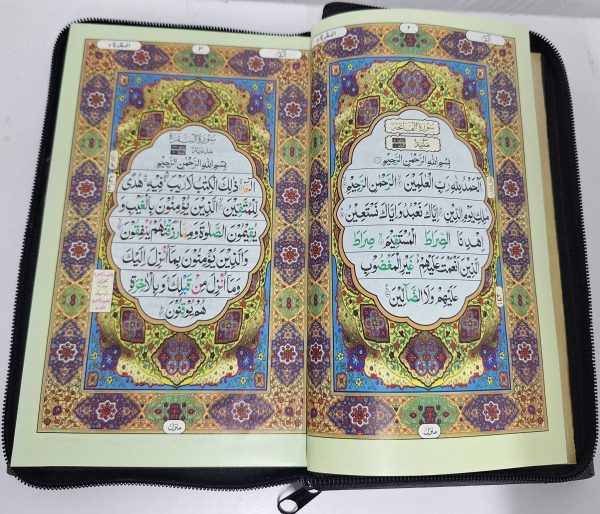 ٢
سورة الفاتحة
مكية
بسم الله الرحمن الرحيم
الحمد لله رب العلمين الرحمن الرحيم
ملك يوم الدين اياك نعبد و اياك نستعين
اهدنا الصراط المستقيم صراط
الذين انعمت عليهم غير المغضوب
عليهم ولا الضالين
منزل
البقرة ٢
٣
سورة البقرة
مدنية
بسم الله الرحمن الرحيم
الم ذلك الكتب لا ريب فيه هدى
للمتقين الذين يؤمنون بالغيب و
يقيمون الصلوة ومما رزقنهم ينفقون
والذين يؤمنون بما انزل اليك
وما انزل من قبلك وبالاخرة
هم يوقنون
منزل